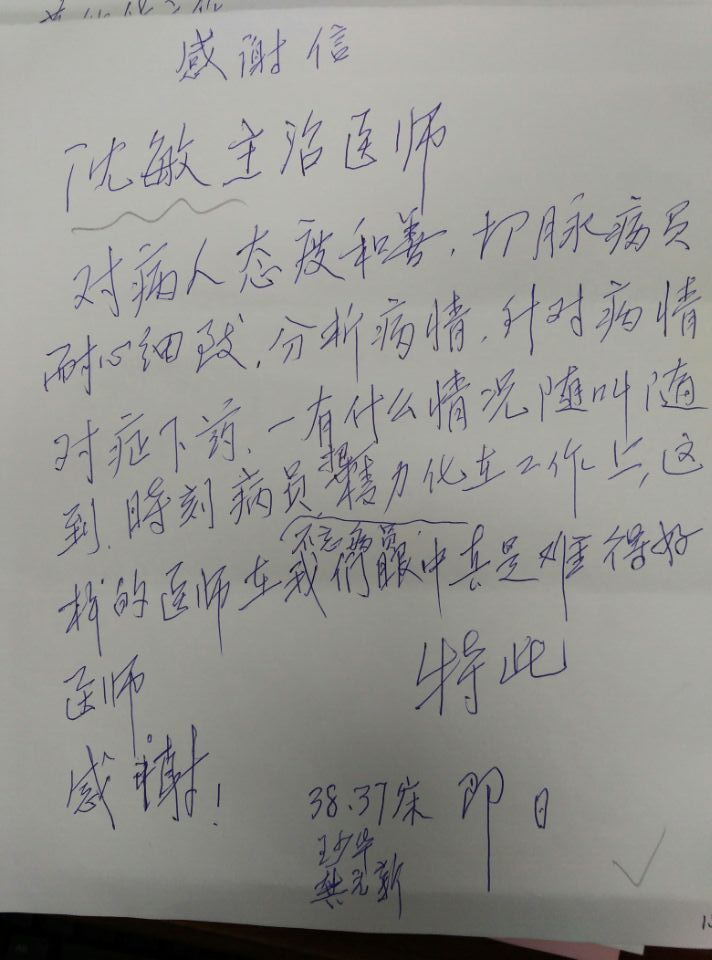 感谢信
沈敏主治医师
对病人态度和善，切脉病员
耐心细致，分析病情，针对病情
对症下药，一有什么情况随叫随
到，時刻病员，精力化在工作上，这
不忘病员
样的医师在我們眼中真是难得好
医师
特此
感謝！
38.37床 即日